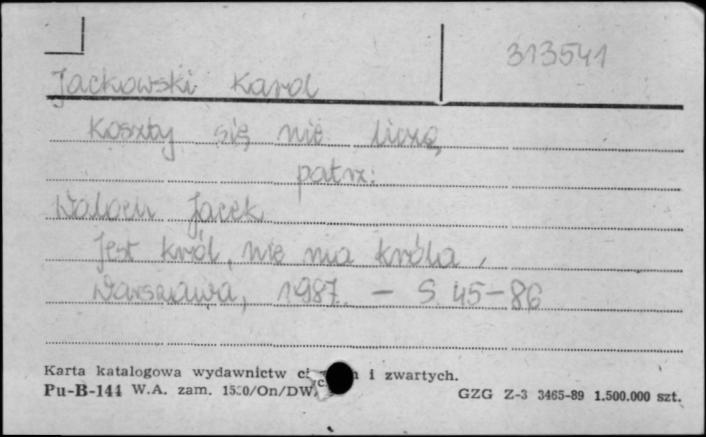 313541
Jackowski Karol
Koszty się nie liczą
patrz:
Jacek
Jest król, nie ma króla,
Warszawa, 1987. - S. 45-86
Karta katalogowa wydawnictw i zwartych.
Pu-B-144 W.A. zam. /On/DW
GZG Z-3 3465-89 1.500.000 szt.